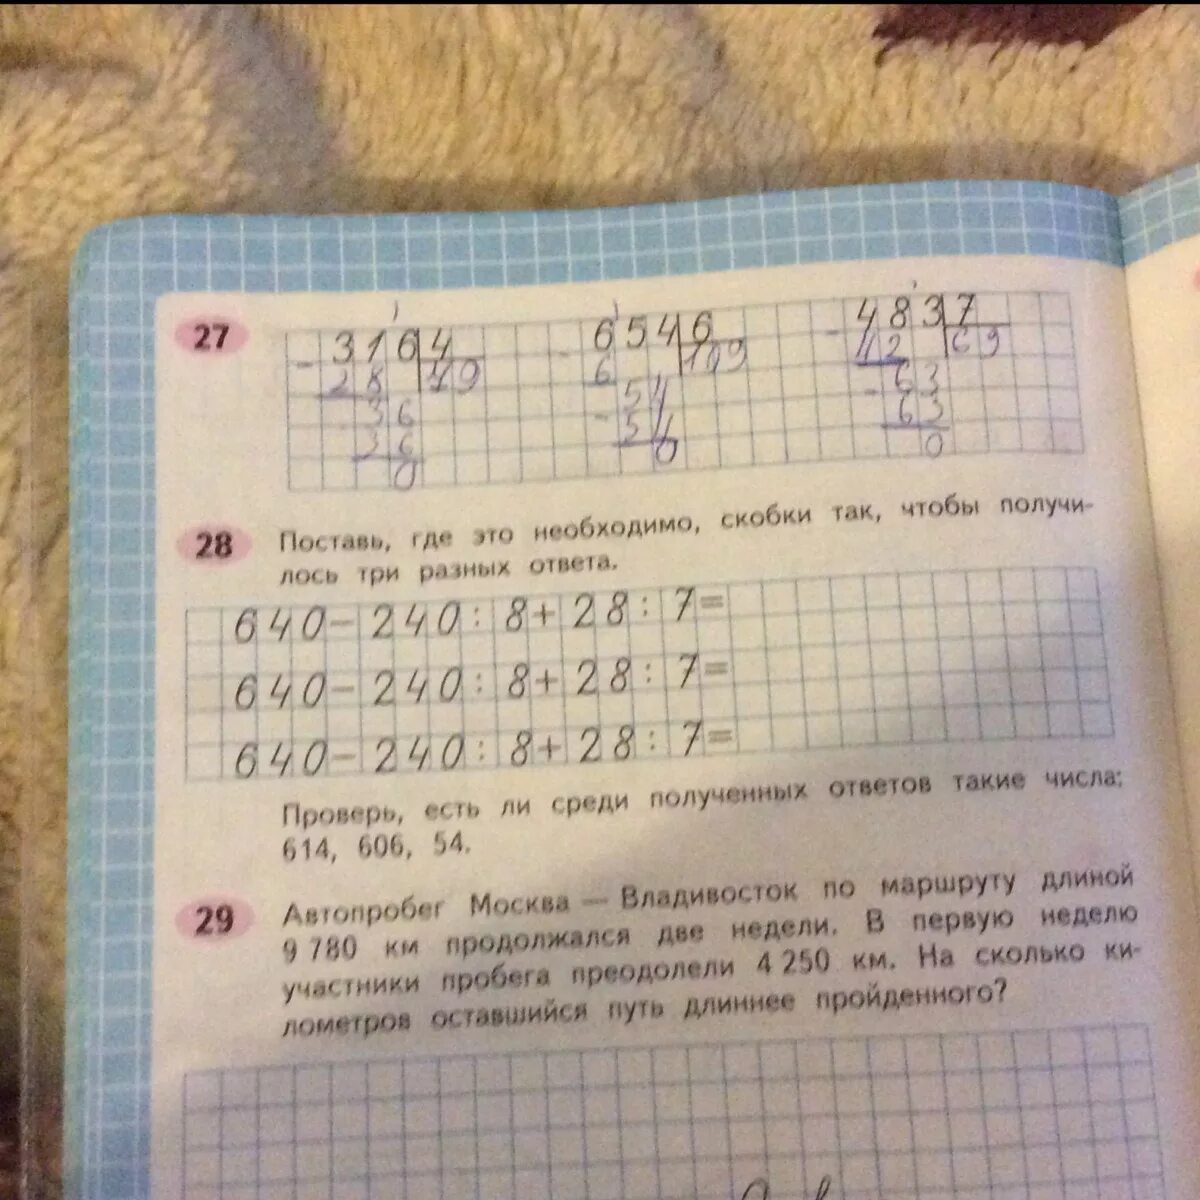 27
316 4   654 6   483 7
28   79   6   109   42   69
36   54   63
36   54   63
0   0   0
28 Поставь, где это необходимо, скобки так, чтобы получи-
лось три разных ответа.
640-240:8+28:7=
640-240:8+28:7=
640-240:8+28:7=
Проверь, есть ли среди полученных ответов такие числа:
614, 606, 54.
29 Автопробег Москва — Владивосток по маршруту длиной
9 780 км продолжался две недели. В первую неделю
участники пробега преодолели 4 250 км. На сколько ки-
лометров оставшийся путь длиннее пройденного?